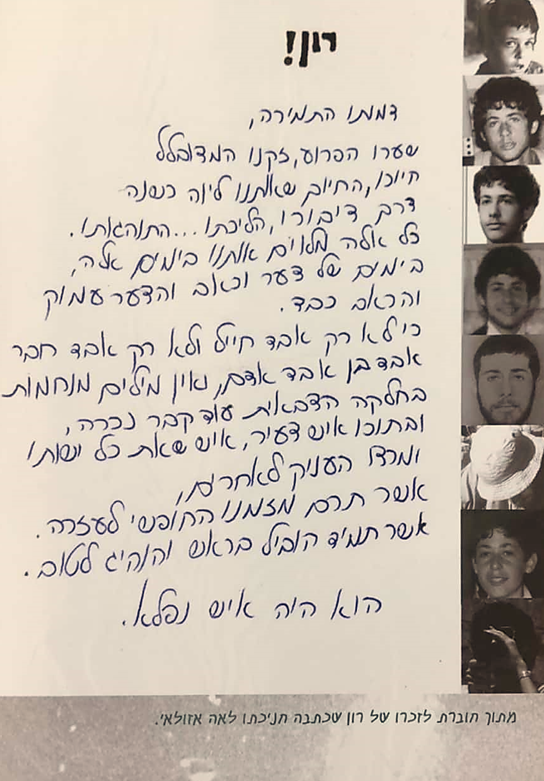 רון!
דמותו התמירה,
שערו הפרוע, זקנו המדובלל
חיוכו, החיוך שאתנו ליווה כשנה
דרך דיבורו, הליכתו... התנהגותו.
כל אלה מלווים אותנו בימים אלה,
בימים של צער וכאב והצער עמוק
והכאב כבד.
כי לא רק אבד חייל ולא רק אבד חבר
אבד בן אבד אדם, ואין מילים מנחמות
בחלקה הצבאית עוד קבר נכרה,
ובתוכו איש צעיר, איש שאת כל ישותו
ומרצו העניק לאחרים,
אשר תרם מזמנו החופשי לעזרה.
אשר תמיד הוביל בראש והנהיג לטוב.
הוא היה איש נפלא.
מתוך חוברת לזכרו של רון שכתבה חניכתו לאה אזולאי.